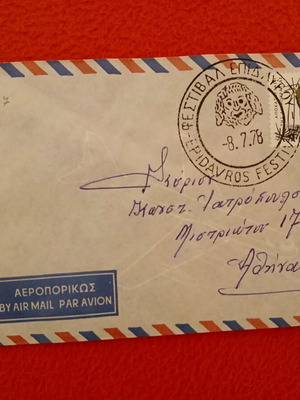 ΦΕΣΤΙΒΑΛ ΕΠΙΔΑΥΡΟΥ
-8.7.78
EPIDAVROS FESTIVAL
Κύριον
Κωνστ. Ιατρόπουλον
Μιστριώτου 17
Αθήνα
ΑΕΡΟΠΟΡΙΚΩΣ
BY AIR MAIL PAR AVION